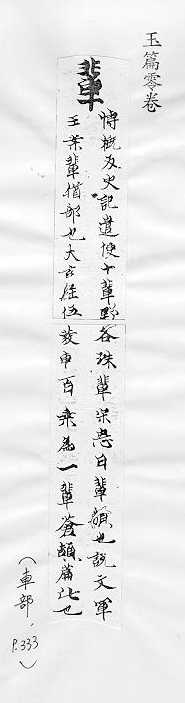 玉篇零卷
輩
愽概反史記遣使十輩野
王案輩猶部也大玄經伍
各殊輩宋忠曰輩類也說文軍
發車百乘為一輩蒼頡篇比也
(車部,
P.333)